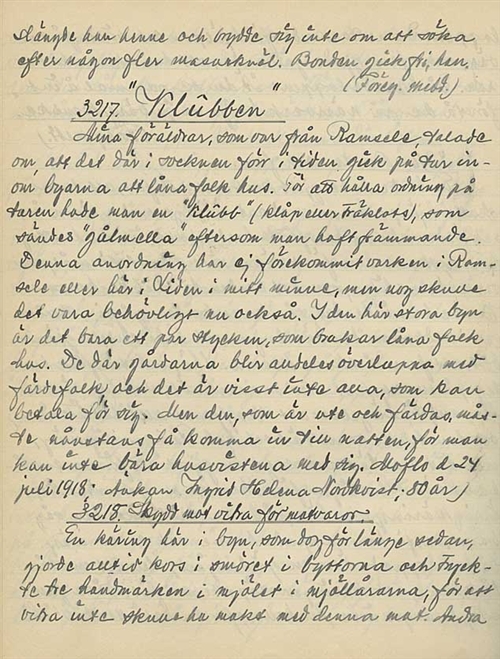 slängde hon henne och brydde sig inte om att söka
efter någon fler masurknöl. Bonden gick fri, hen.
(Föreg. medd.)
3217. "Klubben"
Mina föräldrar, som var från Ramsele, talade
om, att det där i socknen förr i tiden gick på tur in-
om byarna att låna folk hus. För att hålla ordning på
turen hade man en "klubb" (klåp eller träklots), som
sändes "gålmella" eftersom man haft främmande.
Denna anordning har ej förekommit varken i Ram-
sele eller här i Liden i mitt minne, men nog skulle
det vara behövligt nu också. I den här stora byn
är det bara ett par stycken, som brukar låna folk
hus. De där gårdarna blir alldeles överlupna med
färdefolk och det är visst inte alla, som kan
betala för sig. Men den, som är ute och färdas, mås-
te nånstans få komma in till natten, för man
kan inte bära husvistena med sig. Moflo d 24
juli 1918. Änkan Ingrid Helena Nordkvist, 80 år)
3218. Skydd mot vitra för matvaror.
En käring här i byn, som dog för länge sedan,
gjorde alltid kors i smöret i byttorna och tryck-
te tre handmärken i mjölet i mjöllårarna, för att
vitra inte skulle ha makt med denna mat. Andra